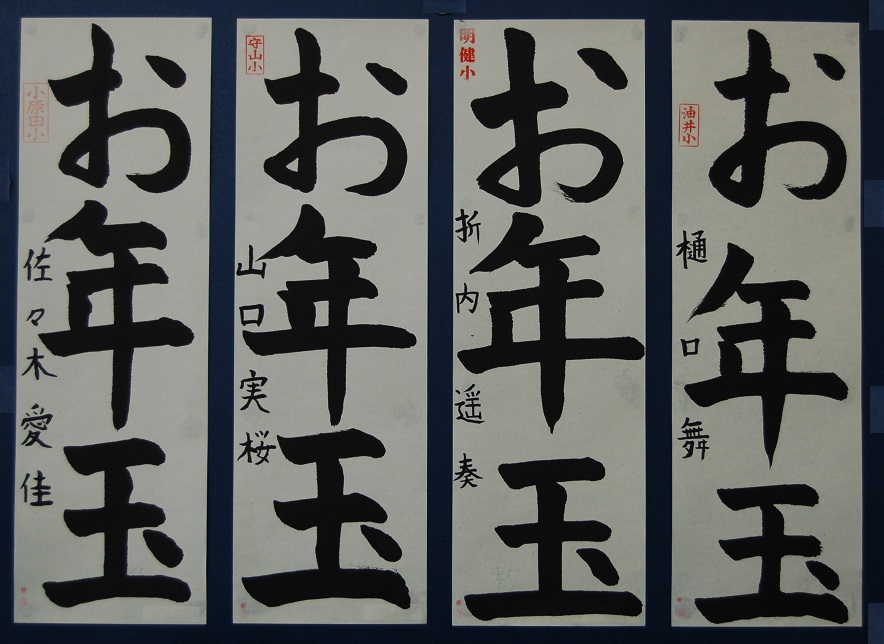 お年玉
小原田小
佐々木愛佳
お年玉
守山小
山口実桜
お年玉
明健小
折内遥奏
お年玉
油井小
樋口舞